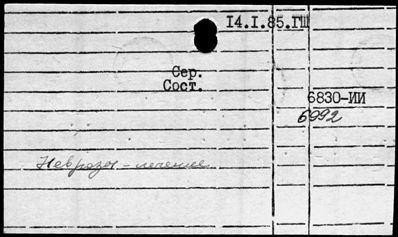 14.I.85.ГШ
Сер.
Сост.
6830-ИИ
6992
Неврозы - лечение